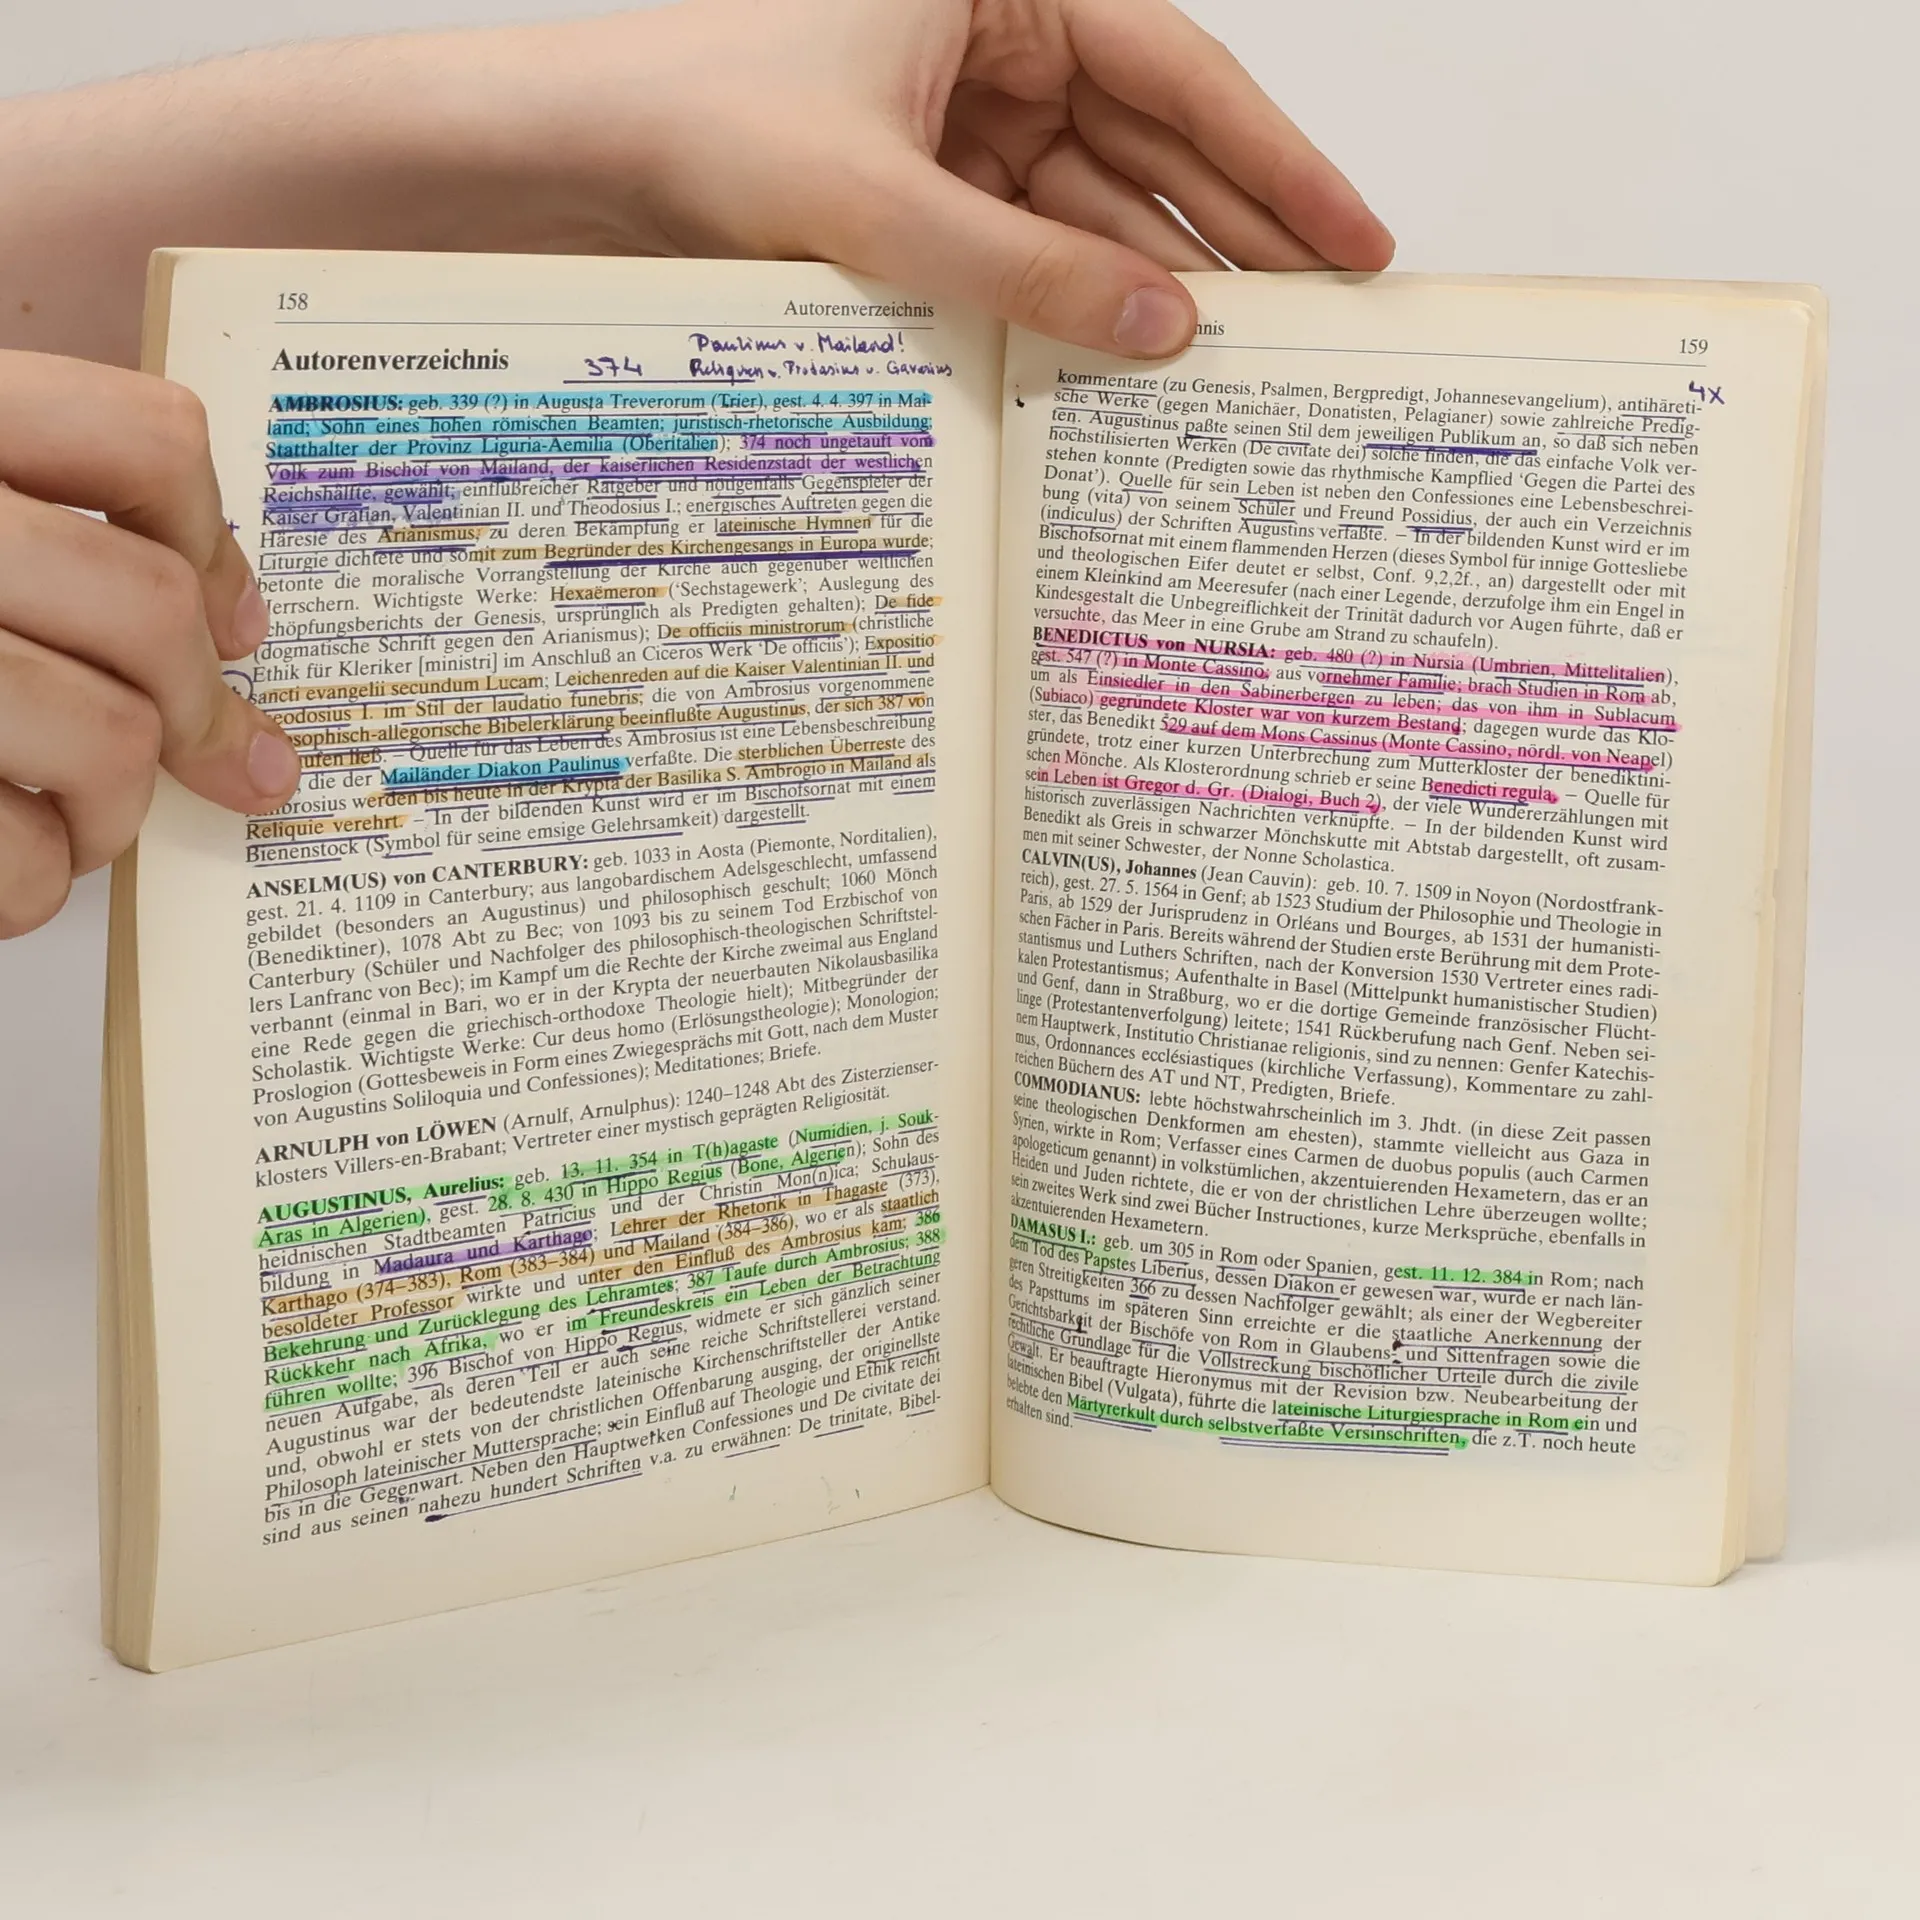 158
Autorenverzeichnis
Autorenverzeichnis
374
Paulinus v. Mailand!
Reliquien v. Protasius u. Gavasius
AMBROSIUS: geb. 339 (?) in Augusta Treverorum (Trier), gest. 4. 4. 397 in Mai-
land; Sohn eines hohen römischen Beamten; juristisch-rhetorische Ausbildung;
Statthalter der Provinz Liguria-Aemilia (Oberitalien); 374 noch ungetauft vom
Volk zum Bischof von Mailand, der kaiserlichen Residenzstadt der westlichen
Reichshälfte, gewählt; einflußreicher Ratgeber und nötigenfalls Gegenspieler der
Kaiser Gratian, Valentinian II. und Theodosius I.; energisches Auftreten gegen die
Häresie des Arianismus, zu deren Bekämpfung er lateinische Hymnen für die
Liturgie dichtete und somit zum Begründer des Kirchengesangs in Europa wurde;
betonte die moralische Vorrangstellung der Kirche auch gegenüber weltlichen
Herrschern. Wichtigste Werke: Hexaëmeron (‘Sechstagewerk’; Auslegung des
chöpfungsberichts der Genesis, ursprünglich als Predigten gehalten); De fide
(dogmatische Schrift gegen den Arianismus); De officiis ministrorum (christliche
Ethik für Kleriker [ministri] im Anschluß an Ciceros Werk ‘De officiis’); Expositio
sancti evangelii secundum Lucam; Leichenreden auf die Kaiser Valentinian II. und
eodosius I. im Stil der laudatio funebris; die von Ambrosius vorgenommene
sophisch-allegorische Bibelerklärung beeinflußte Augustinus, der sich 387 von
ufen ließ. – Quelle für das Leben des Ambrosius ist eine Lebensbeschreibung
, die der Mailänder Diakon Paulinus verfaßte. Die sterblichen Überreste des
mbrosius werden bis heute in der Krypta der Basilika S. Ambrogio in Mailand als
Reliquie verehrt. – In der bildenden Kunst wird er im Bischofsornat mit einem
Bienenstock (Symbol für seine emsige Gelehrsamkeit) dargestellt.
ANSELM(US) von CANTERBURY: geb. 1033 in Aosta (Piemonte, Norditalien),
gest. 21. 4. 1109 in Canterbury; aus langobardischem Adelsgeschlecht, umfassend
gebildet (besonders an Augustinus) und philosophisch geschult; 1060 Mönch
(Benediktiner), 1078 Abt zu Bec; von 1093 bis zu seinem Tod Erzbischof von
Canterbury (Schüler und Nachfolger des philosophisch-theologischen Schriftstel-
lers Lanfranc von Bec); im Kampf um die Rechte der Kirche zweimal aus England
verbannt (einmal in Bari, wo er in der Krypta der neuerbauten Nikolausbasilika
eine Rede gegen die griechisch-orthodoxe Theologie hielt); Mitbegründer der
Scholastik. Wichtigste Werke: Cur deus homo (Erlösungstheologie); Monologion;
Proslogion (Gottesbeweis in Form eines Zwiegesprächs mit Gott, nach dem Muster
von Augustins Soliloquia und Confessiones); Meditationes; Briefe.
ARNULPH von LÖWEN (Arnulf, Arnulphus): 1240–1248 Abt des Zisterzienser-
klosters Villers-en-Brabant; Vertreter einer mystisch geprägten Religiosität.
AUGUSTINUS, Aurelius: geb. 13. 11. 354 in T(h)agaste (Numidien, j. Souk-
Aras in Algerien), gest. 28. 8. 430 in Hippo Regius (Bone, Algerien); Sohn des
heidnischen Stadtbeamten Patricius und der Christin Mon(n)ica; Schulaus-
bildung in Madaura und Karthago; Lehrer der Rhetorik in Thagaste (373),
Karthago (374–383), Rom (383–384) und Mailand (384–386), wo er als staatlich
besoldeter Professor wirkte und unter den Einfluß des Ambrosius kam; 386
Bekehrung und Zurücklegung des Lehramtes; 387 Taufe durch Ambrosius; 388
Rückkehr nach Afrika, wo er im Freundeskreis ein Leben der Betrachtung
führen wollte; 396 Bischof von Hippo Regius, widmete er sich gänzlich seiner
neuen Aufgabe, als deren Teil er auch seine reiche Schriftstellerei verstand.
Augustinus war der bedeutendste lateinische Kirchenschriftsteller der Antike
und, obwohl er stets von der christlichen Offenbarung ausging, der originellste
Philosoph lateinischer Muttersprache; sein Einfluß auf Theologie und Ethik reicht
bis in die Gegenwart. Neben den Hauptwerken Confessiones und De civitate dei
sind aus seinen nahezu hundert Schriften v.a. zu erwähnen: De trinitate, Bibel-
nnis
159
4x
kommentare (zu Genesis, Psalmen, Bergpredigt, Johannesevangelium), antihäreti-
sche Werke (gegen Manichäer, Donatisten, Pelagianer) sowie zahlreiche Predig-
ten. Augustinus paßte seinen Stil dem jeweiligen Publikum an, so daß sich neben
hochstilisierten Werken (De civitate dei) solche finden, die das einfache Volk ver-
stehen konnte (Predigten sowie das rhythmische Kampflied ‘Gegen die Partei des
Donat’). Quelle für sein Leben ist neben den Confessiones eine Lebensbeschrei-
bung (vita) von seinem Schüler und Freund Possidius, der auch ein Verzeichnis
(indiculus) der Schriften Augustins verfaßte. – In der bildenden Kunst wird er im
Bischofsornat mit einem flammenden Herzen (dieses Symbol für innige Gottesliebe
und theologischen Eifer deutet er selbst, Conf. 9,2,2f., an) dargestellt oder mit
einem Kleinkind am Meeresufer (nach einer Legende, derzufolge ihm ein Engel in
Kindesgestalt die Unbegreiflichkeit der Trinität dadurch vor Augen führte, daß er
versuchte, das Meer in eine Grube am Strand zu schaufeln).
BENEDICTUS von NURSIA: geb. 480 (?) in Nursia (Umbrien, Mittelitalien),
gest. 547 (?) in Monte Cassino; aus vornehmer Familie; brach Studien in Rom ab,
um als Einsiedler in den Sabinerbergen zu leben; das von ihm in Sublacum
(Subiaco) gegründete Kloster war von kurzem Bestand; dagegen wurde das Klo-
ster, das Benedikt 529 auf dem Mons Cassinus (Monte Cassino, nördl. von Neapel)
gründete, trotz einer kurzen Unterbrechung zum Mutterkloster der benediktini-
schen Mönche. Als Klosterordnung schrieb er seine Benedicti regula. – Quelle für
sein Leben ist Gregor d. Gr. (Dialogi, Buch 2), der viele Wundererzählungen mit
historisch zuverlässigen Nachrichten verknüpfte. – In der bildenden Kunst wird
Benedikt als Greis in schwarzer Mönchskutte mit Abtstab dargestellt, oft zusam-
men mit seiner Schwester, der Nonne Scholastica.
CALVIN(US), Johannes (Jean Cauvin): geb. 10. 7. 1509 in Noyon (Nordostfrank-
reich), gest. 27. 5. 1564 in Genf; ab 1523 Studium der Philosophie und Theologie in
Paris, ab 1529 der Jurisprudenz in Orléans und Bourges, ab 1531 der humanisti-
schen Fächer in Paris. Bereits während der Studien erste Berührung mit dem Prote-
stantismus und Luthers Schriften, nach der Konversion 1530 Vertreter eines radi-
kalen Protestantismus; Aufenthalte in Basel (Mittelpunkt humanistischer Studien)
und Genf, dann in Straßburg, wo er die dortige Gemeinde französischer Flücht-
linge (Protestantenverfolgung) leitete; 1541 Rückberufung nach Genf. Neben sei-
nem Hauptwerk, Institutio Christianae religionis, sind zu nennen: Genfer Katechis-
mus, Ordonnances ecclésiastiques (kirchliche Verfassung), Kommentare zu zahl-
reichen Büchern des AT und NT, Predigten, Briefe.
COMMODIANUS: lebte höchstwahrscheinlich im 3. Jhdt. (in diese Zeit passen
seine theologischen Denkformen am ehesten), stammte vielleicht aus Gaza in
Syrien, wirkte in Rom; Verfasser eines Carmen de duobus populis (auch Carmen
apologeticum genannt) in volkstümlichen, akzentuierenden Hexametern, das er an
Heiden und Juden richtete, die er von der christlichen Lehre überzeugen wollte;
sein zweites Werk sind zwei Bücher Instructiones, kurze Merksprüche, ebenfalls in
akzentuierenden Hexametern.
DAMASUS I.: geb. um 305 in Rom oder Spanien, gest. 11. 12. 384 in Rom; nach
dem Tod des Papstes Liberius, dessen Diakon er gewesen war, wurde er nach län-
geren Streitigkeiten 366 zu dessen Nachfolger gewählt; als einer der Wegbereiter
des Papsttums im späteren Sinn erreichte er die staatliche Anerkennung der
Gerichtsbarkeit der Bischöfe von Rom in Glaubens- und Sittenfragen sowie die
rechtliche Grundlage für die Vollstreckung bischöflicher Urteile durch die zivile
Gewalt. Er beauftragte Hieronymus mit der Revision bzw. Neubearbeitung der
lateinischen Bibel (Vulgata), führte die lateinische Liturgiesprache in Rom ein und
belebte den Märtyrerkult durch selbstverfaßte Versinschriften, die z.T. noch heute
erhalten sind.